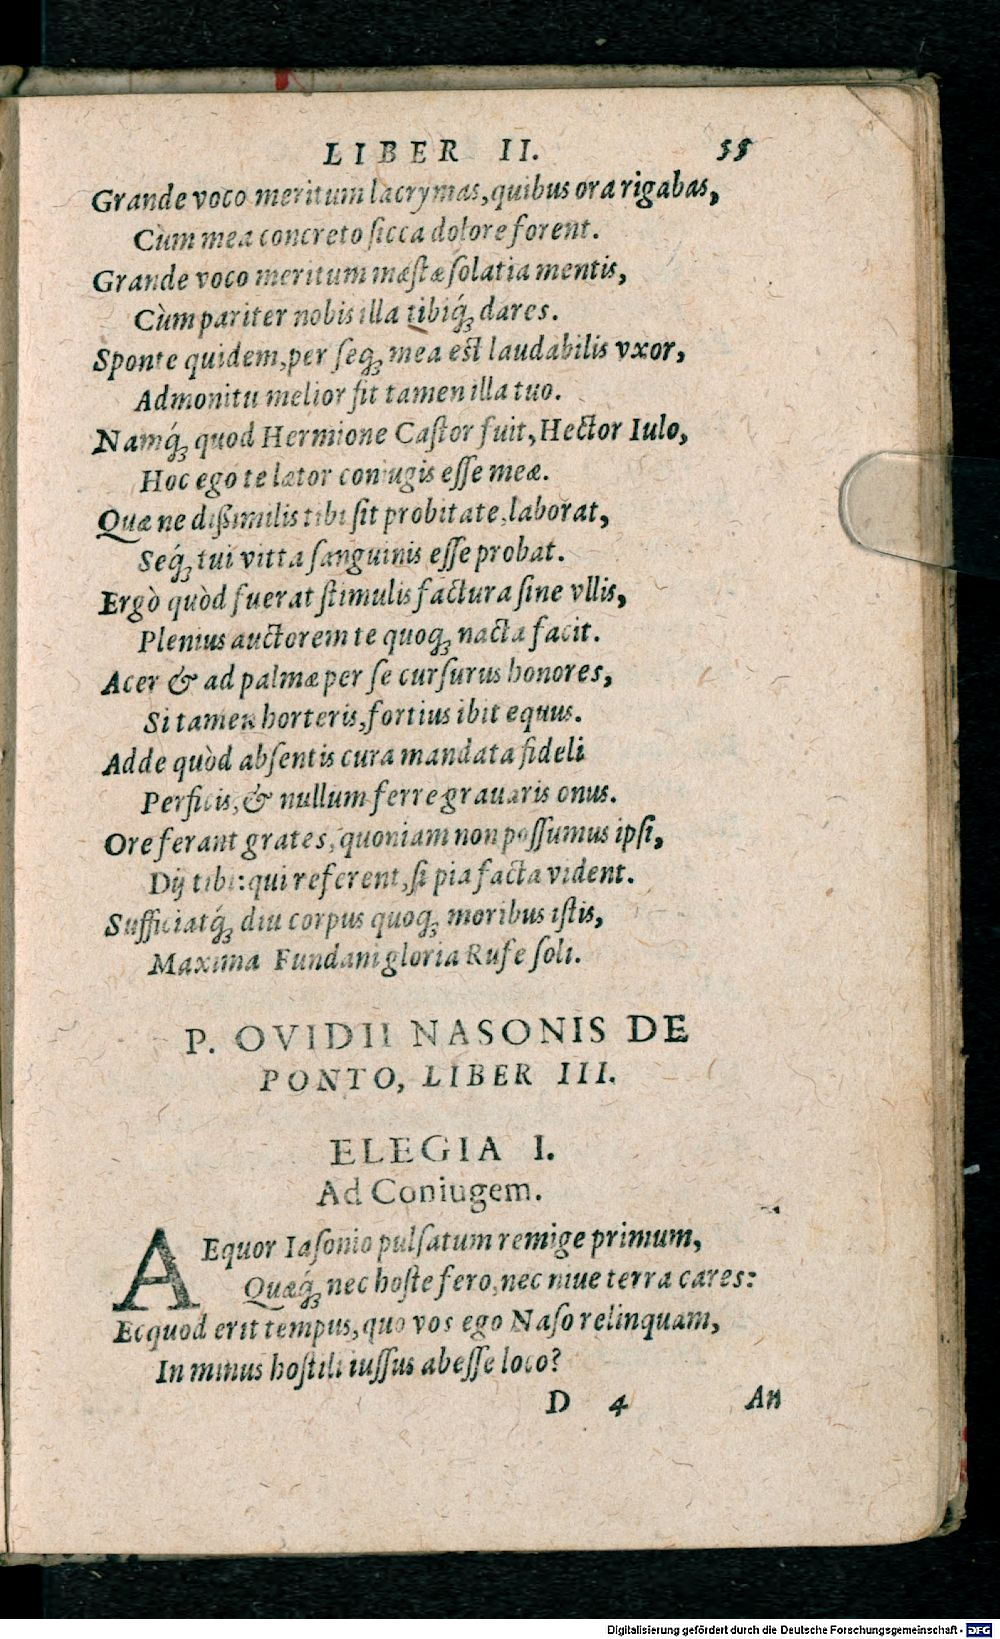 LIBER II. 55
Grande voco meritum lacrymas, quibus ora rigabas,
Cùm mea concreto sicca dolore forent.
Grande voco meritum mæstæ solatia mentis,
Cùm pariter nobis illa tibiq́ꝫ dares.
Sponte quidem, per seqꝫ mea est laudabilis vxor,
Admonitu melior fit tamen illa tuo.
Namq́ꝫ quod Hermione Castor fuit, Hector Iulo,
Hoc ego te lætor coniugis esse meæ.
Quæ ne dißimilis tibi sit probitate, laborat,
Seq́ꝫ tui vitta sanguinis esse probat.
Ergò quòd fuerat stimulis factura sine vllis,
Plenius auctorem te quoqꝫ nacta facit.
Acer & ad palmæ per se cursurus honores,
Si tamen horteris, fortius ibit equus.
Adde quòd absentis cura mandata fideli
Perficis, & nullum ferre grauaris onus.
O referant grates, quoniam non possumus ipsi,
Dij tibi: qui referent, si pia facta vident.
Sufficiatq́ꝫ diu corpus quoqꝫ moribus istis,
Maxima Fundani gloria Rufe soli.
P. OVIDII NASONIS DE
PONTO, LIBER III.
ELEGIA I.
Ad Coniugem.
AEquor Iasonio pulsatum remige primum,
Quæq́ꝫ nec hoste fero, nec niue terra cares:
Ecquod erit tempus, quo vos ego Naso relinquam,
In minus hostili iussus abesse loco?
D 4 An
Digitalisierung gefördert durch die Deutsche Forschungsgemeinschaft - DFG